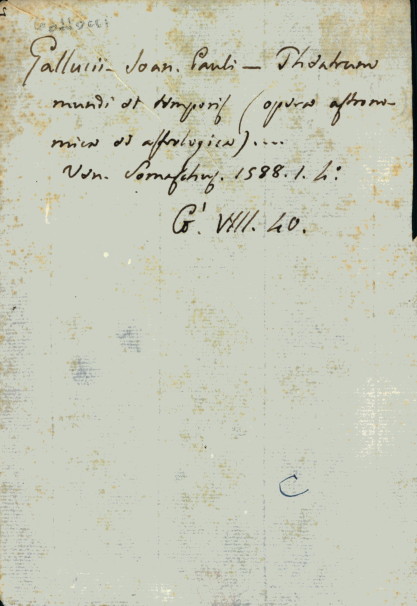 Galluccii - Joan. Pauli - Theatrum
mundi et temporis (opera astrono-
mica et astrologica) ...
Ven. Somaschus. 1588. 1. 4:
G'. VIII. 40.
C